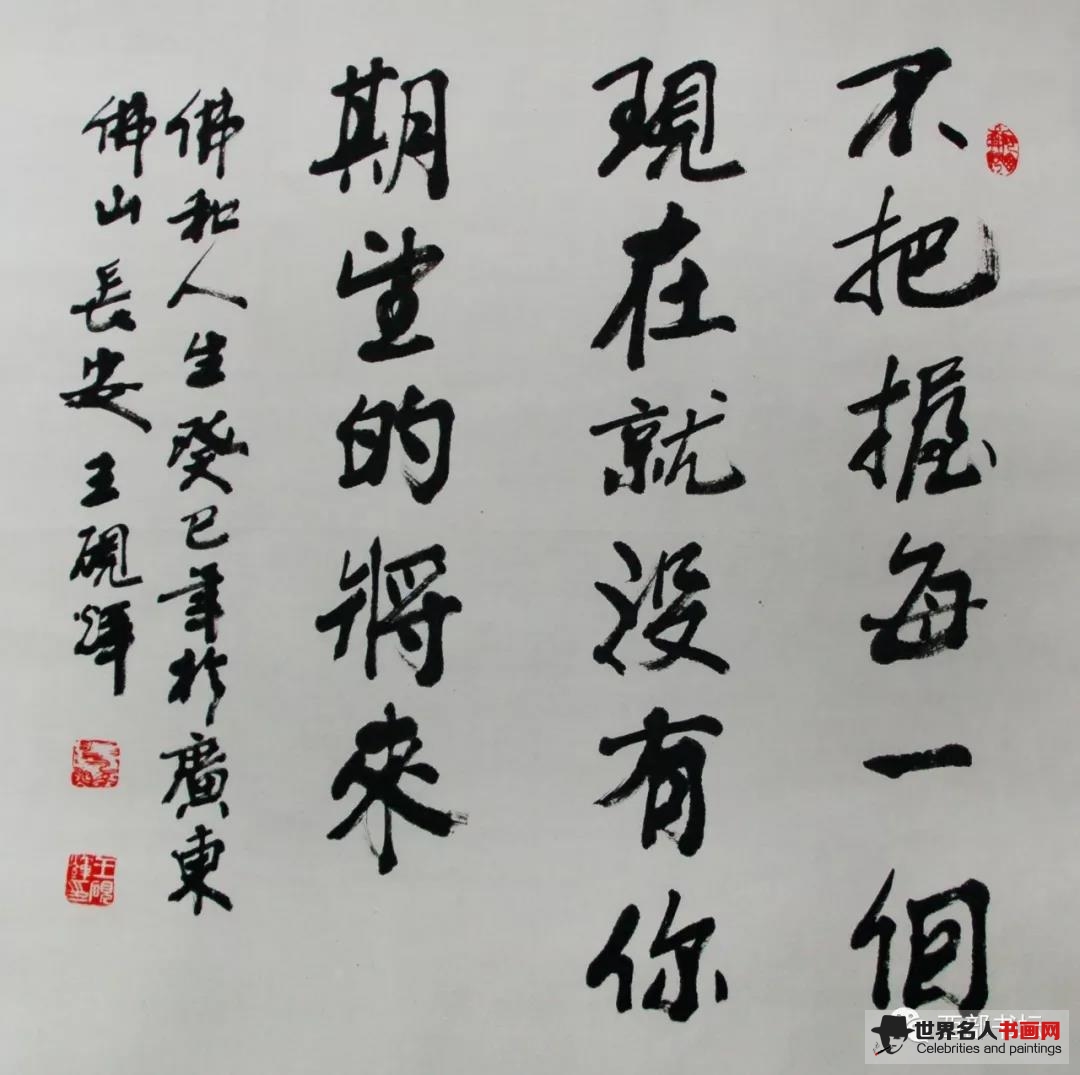 不把握每一個
現在就没有你
期望的將來
佛和人生癸巳年於廣東
佛山長安王硯輝
世界名人书画网
Celebrities and paintings